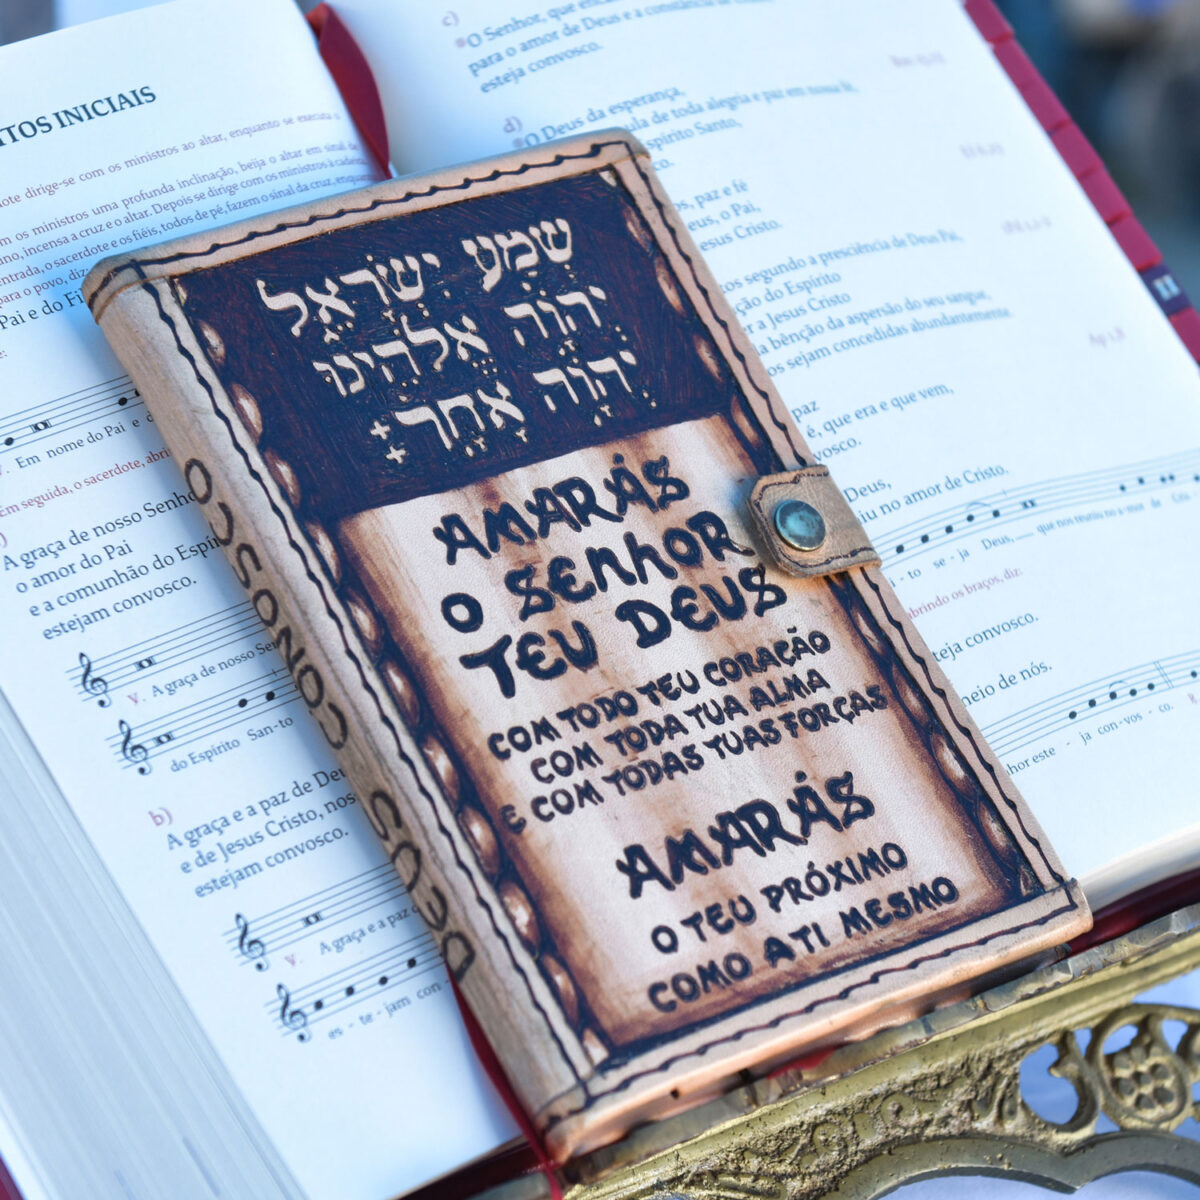 שְׁמַע יִשְׂרָאֵל
יְהוָֹה אֱלֹהֵינוּ
יְהוָֹה אֶחָֽד׃
AMARÁS
O SENHOR
TEU DEUS
COM TODO TEU CORAÇÃO
COM TODA TUA ALMA
E COM TODAS TUAS FORÇAS
AMARÁS
O TEU PRÓXIMO
COMO A TI MESMO
DEUS CONOSCO
TOS INICIAIS
ote dirige-se com os ministros ao altar, enquanto se executa
m os ministros uma profunda inclinação, beija o altar em sinal de
ano, incensa a cruz e o altar. Depois se dirige com os ministros à cadeira.
entrada, o sacerdote e os fiéis, todos de pé, fazem o sinal da cruz, enquanto
para o povo, diz:
Pai e do Fi
Em nome do Pai e d
Em seguida, o sacerdote, abri
A graça de nosso Senhor
o amor do Pai
e a comunhão do Espír
estejam convosco.
V. A graça de nosso Sen
do Espírito San-to
b)
A graça e a paz de Deu
e de Jesus Cristo, nos
estejam convosco.
V. A graça e a paz d
es - te - jam con -
c)
O Senhor, que
para o amor de Deus e a constância de
esteja convosco.
d)
O Deus da esperança,
ula de toda alegria e paz em nossa fé,
spírito Santo,
co.
s, paz e fé
eus, o Pai,
esus Cristo.
os segundo a presciência de Deus Pai,
ção do Espírito
r a Jesus Cristo
a bênção da aspersão do seu sangue,
os sejam concedidas abundantemente.
Ap 1,8
paz
é, que era e que vem,
nvosco.
Deus,
iu no amor de Cristo.
i - to se - ja Deus, que nos reuniu no a-mor de Cris
abrindo os braços, diz:
teja convosco.
meio de nós.
hor este - ja con-vos - co.